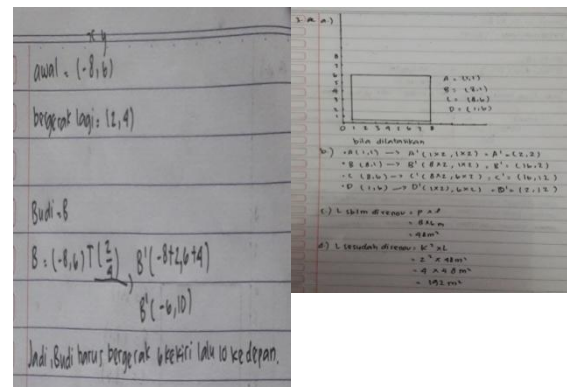 x y
awal = (-8,6)
bergerak lagi = (2,4)
Budi = B
B = (-8,6) T (2/4) B' (-8+2,6+4)
B' (-6,10)
Jadi, Budi harus bergerak 6 kekiri lalu 10 kedepan.
3. a. a)
8
7
6
5
4
3
2
1
0 1 2 3 4 5 6 7 8
A = (1,1)
B = (8,1)
C = (8,6)
D = (1,6)
bila dilatasikan
b.) • A (1,1) → A' (1x2, 1x2) = A' = (2,2)
• B (8,1) → B' (8x2, 1x2) = B' = (16,2)
• C (8,6) → C' (8x2, 6x2) = C' = (16,12)
• D (1,6) → D' (1x2, 6x2) = D' = (2,12)
c.) L sblm direnov = p x l
= 8x6 m
= 48 m²
d.) L sesudah direnov = K² x L
= 2² x 48 m²
= 4 x 48 m²
= 192 m²